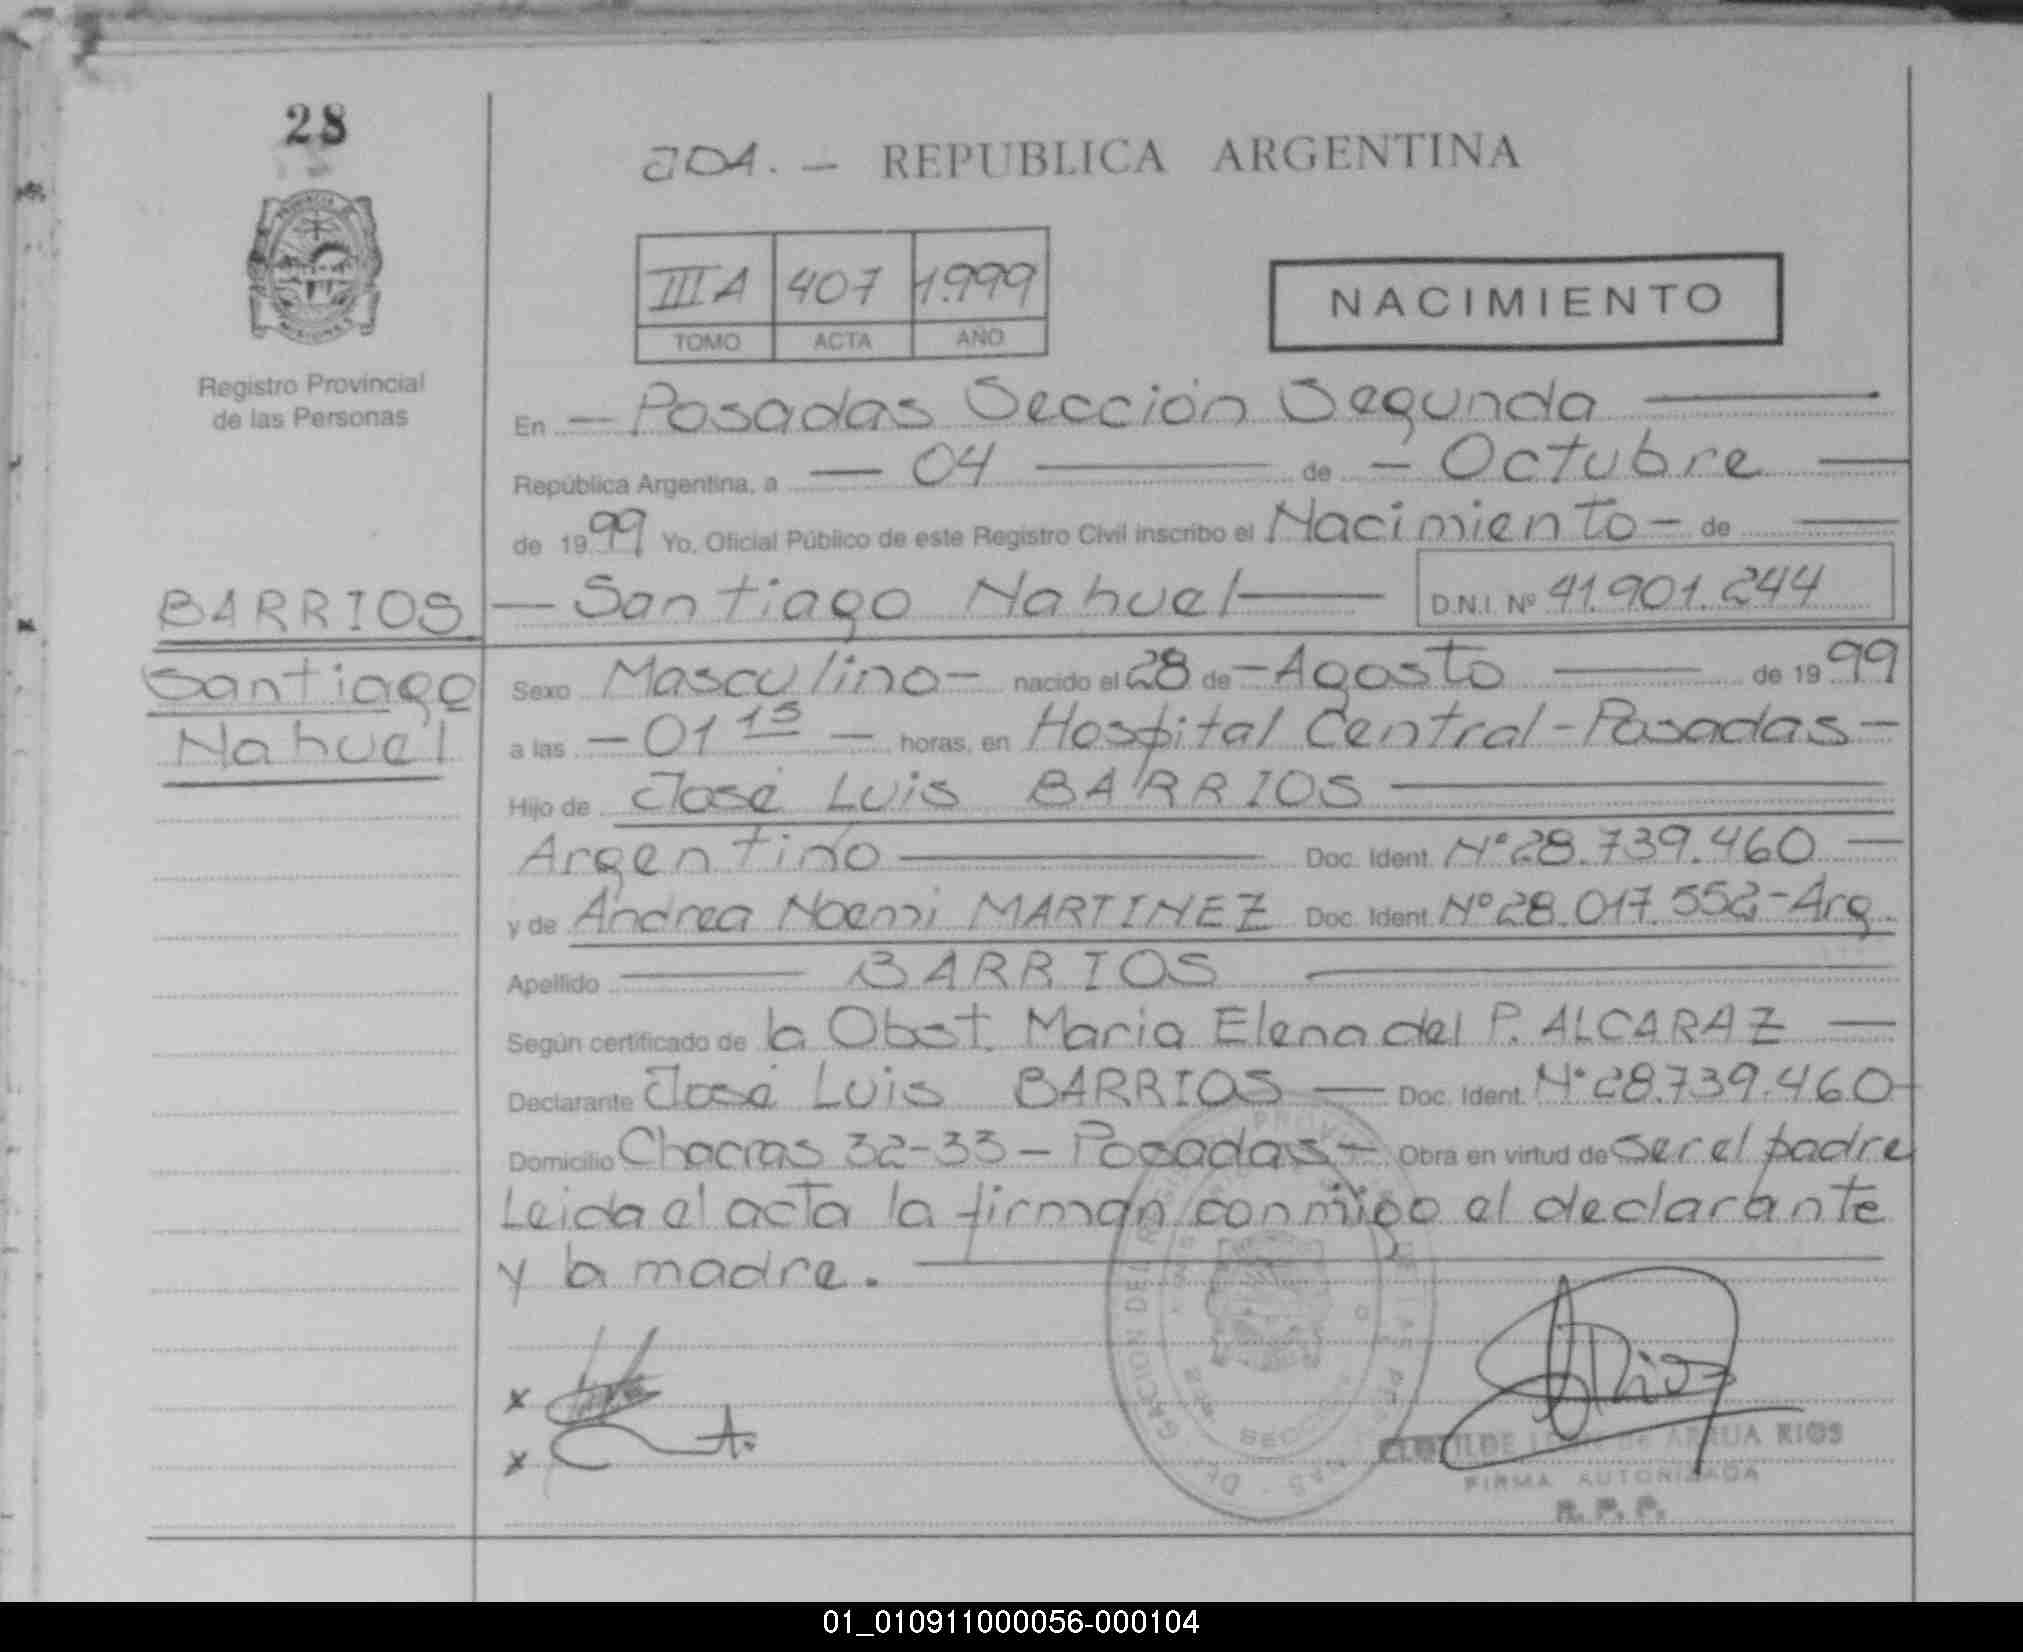 28
201. – REPUBLICA ARGENTINA
III A 407 1.999
TOMO ACTA AÑO
NACIMIENTO
Registro Provincial
de las Personas
En – Posadas Sección Segunda —
República Argentina, a — 04 — de – Octubre —
de 1999 Yo, Oficial Público de este Registro Civil inscribo el Nacimiento – de —
BARRIOS — Santiago Nahuel — D.N.I. Nº 41.901.244
Santiago
Nahuel
Sexo Masculino – nacido el 28 de – Agosto — de 1999
a las – 01 15 – horas, en Hospital Central - Posadas –
Hijo de José Luis BARRIOS —
Argentino — Doc. Ident. Nº 28.739.460 —
y de Andrea Noemi MARTINEZ Doc. Ident. Nº 28.017.552 - Arg.
Apellido — BARRIOS —
Según certificado de la Obst. Maria Elena del P. ALCARAZ —
Declarante José Luis BARRIOS — Doc. Ident. Nº 28.739.460 –
Domicilio Chacras 32-33 – Posadas – Obra en virtud de ser el padre
Leida el acta la firman conmigo el declarante
y la madre. —
x
x
RIOS
FIRMA AUTORIZADA
R. P. P.
01_010911000056-000104